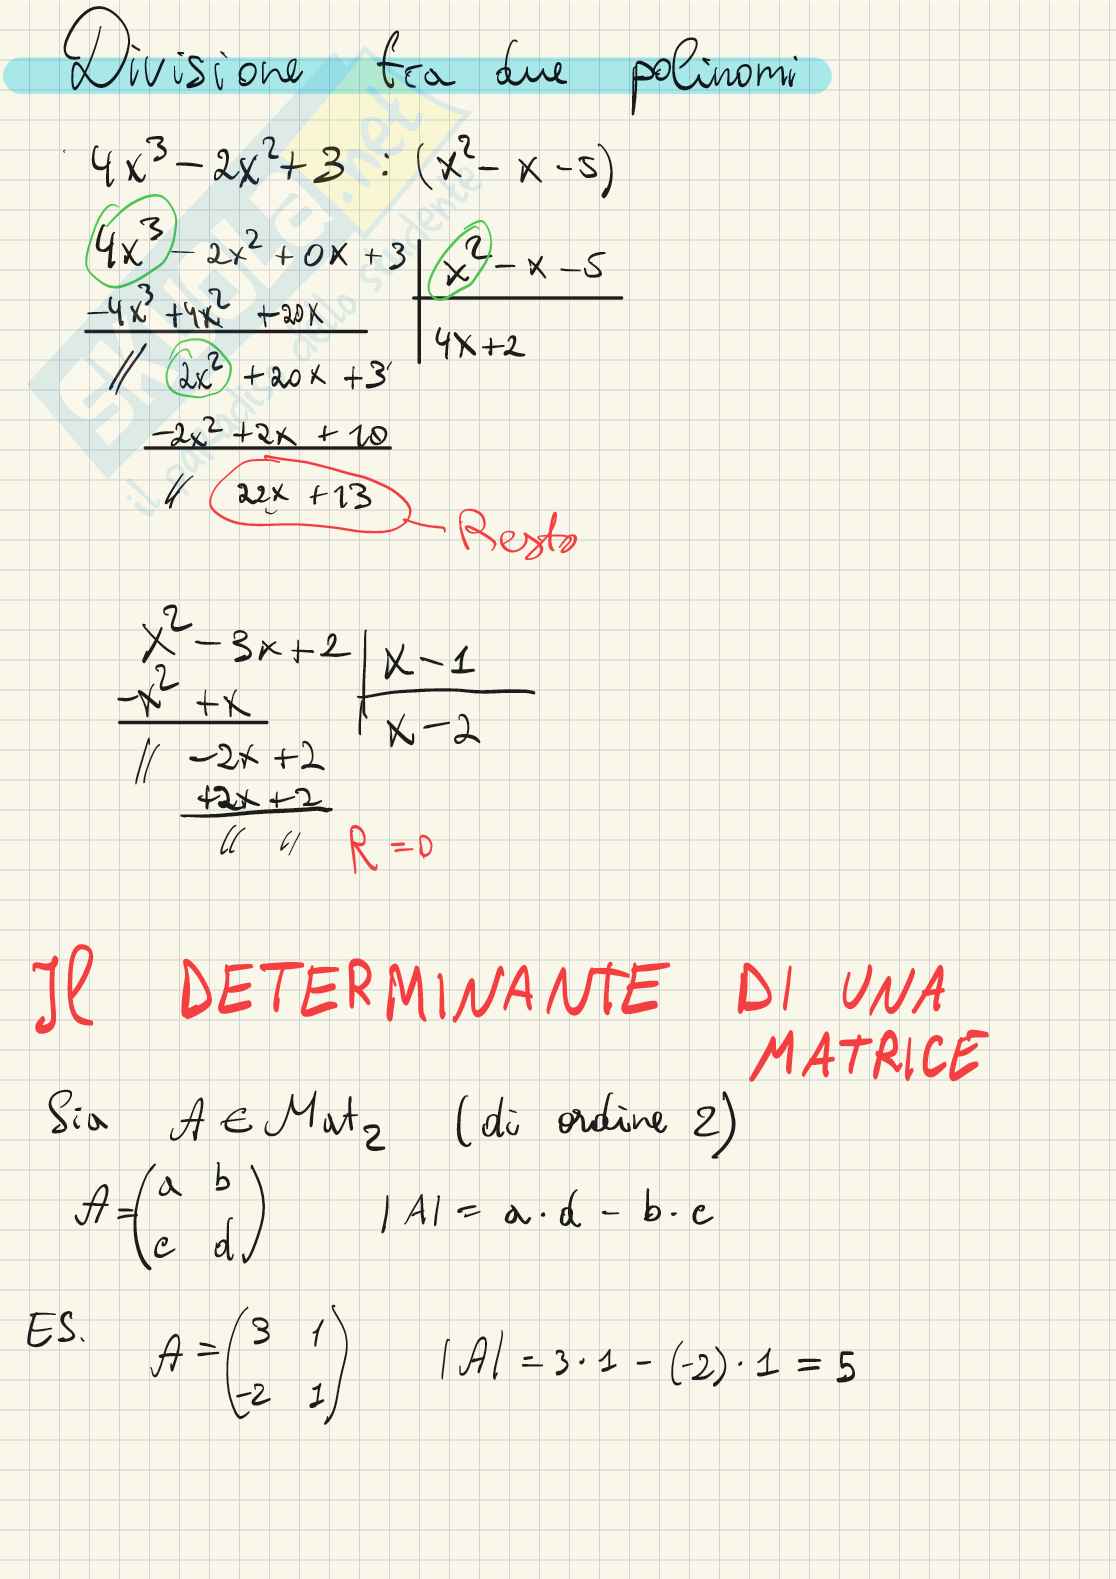 Divisione tra due polinomi
4x³ - 2x² + 3 : (x² - x - 5)
4x³ - 2x² + 0x + 3 | x² - x - 5
-4x³ + 4x² + 20x | 4x + 2
// 2x² + 20x + 3
-2x² + 2x + 10
// 22x + 13 Resto
x² - 3x + 2 | x - 1
-x² + x | x - 2
// -2x + 2
+2x + 2
// // R = 0
Il DETERMINANTE DI UNA
MATRICE
Sia A ∈ Mat₂ (di ordine 2)
A = (a b
c d) |A| = a · d - b · c
ES. A = (3 1
-2 1) |A| = 3 · 1 - (-2) · 1 = 5
SKUOLA.net
il paradiso dello studente